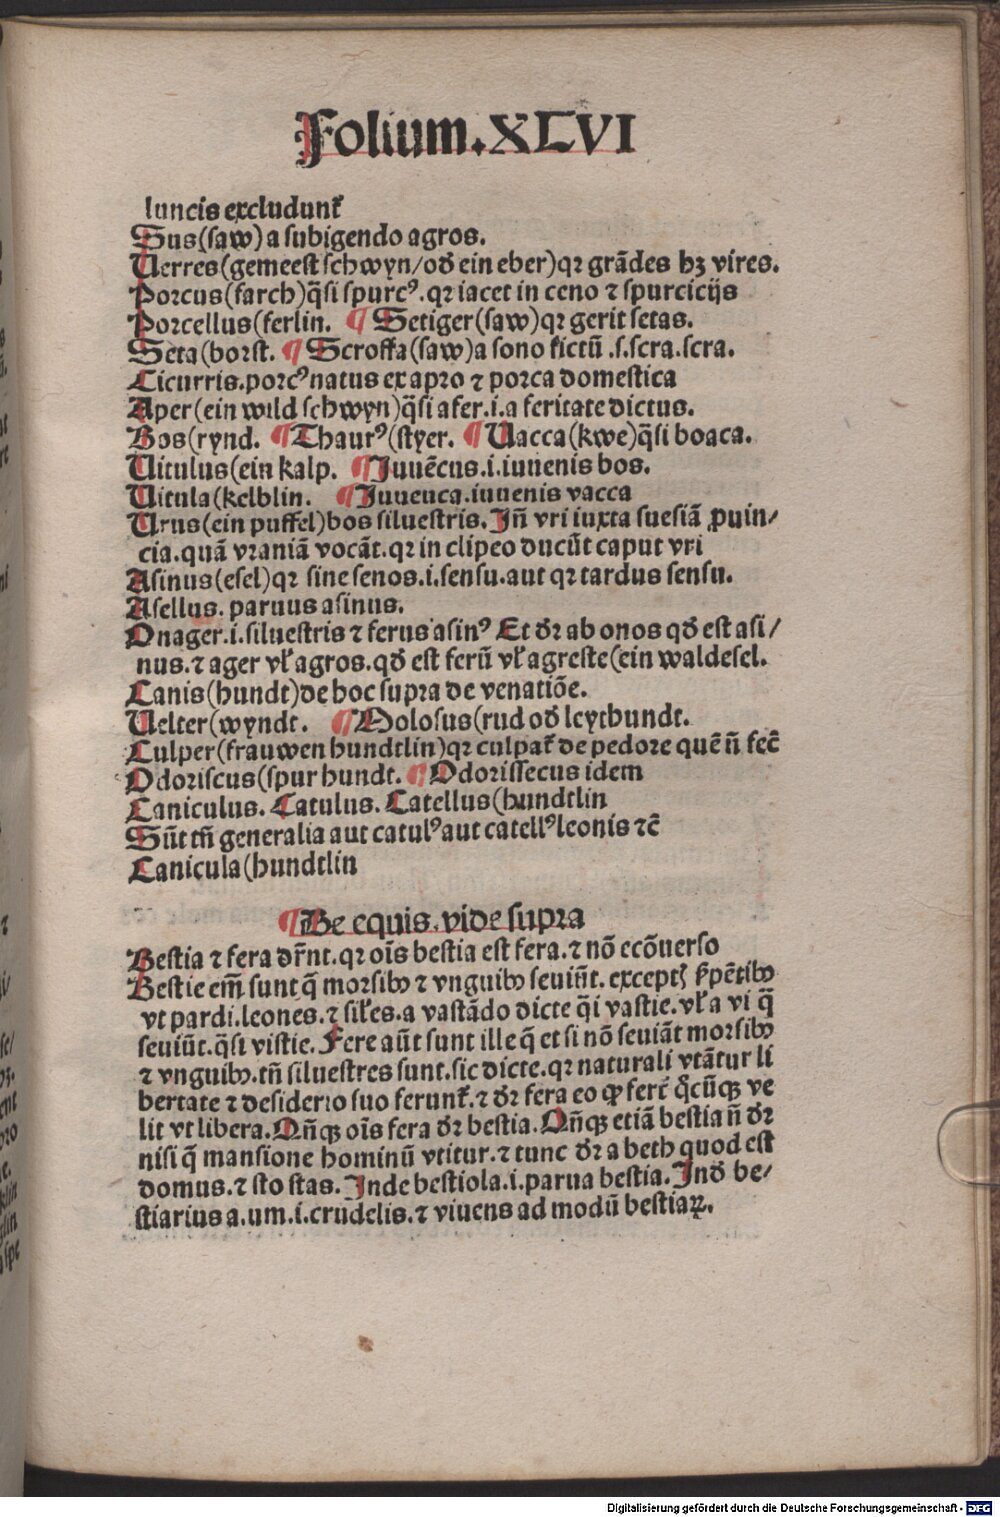 Folium.XLVI
luncis excludunt᷑
Sus(saw) a subigendo agros.
Uerres(gemeest schwyn/oď ein eber)qꝛ grādes hꝫ vires.
Porcus(farch)q̄si spurcꝰ.qꝛ iacet in ceno ⁊ spurcicijs
Porcellus(ferlin. ¶ Setiger(saw)qꝛ gerit setas.
Seta(borst. ¶ Scroffa(saw)a sono fictū .s.scra.scra.
Cicurris.porcꝰ natus ex apro ⁊ porca domestica
Aper(ein wild schwyn)q̄si afer.i.a feritate dictus.
Bos(rynd. ¶Thaurꝰ(styer. ¶ Uacca(kwe)q̄si boaca.
Uitulus(ein kalp. ¶Juuēcus.i.iuuenis bos.
Uitula(kelblin. ¶Juuenca.iuuenis vacca
Urus(ein puffel)bos siluestris.Jñ vri iuxta suesiā ꝓuin/
cia.quā vraniā vocāt.qꝛ in clipeo ducūt caput vri
Asinus(esel)qꝛ sine senos.i.sensu.aut qꝛ tardus sensu.
Asellus. paruus asinus.
Onager.i.siluestris ⁊ ferus asinꝰ Et dr̄ ab onos qď est asi/
nus.⁊ ager vł agros.qď est ferū vł agreste(ein waldesel.
Canis(hundt)de hoc supra de venatiōe.
Uelter(wyndt. ¶Molosus(rud oď leythundt.
Culper(frauwen hundtlin)qꝛ culpat᷑ de pedore quē ñ fec̄
Odoriscus(spur hundt. ¶Odorissecus idem
Caniculus. Catulus. Catellus(hundtlin
Sūt tñ generalia aut catulꝰ aut catellꝰ leonis ⁊c̄
Canicula(hundtlin
¶De equis.vide supra
Bestia ⁊ fera dr̄nt.qꝛ oīs bestia est fera.⁊ nō ecōuerso
Bestie em̄ sunt q̄ morsibꝰ ⁊ vnguibꝰ seuiūt. exceptꝭ s̓pētibꝰ
vt pardi.leones.⁊ siłes.a vastādo dicte q̄i vastie.vł a vi q̄
seuiūt.q̄si vistie.Fere aūt sunt ille q̄ et si nō seuiāt morsibꝰ
⁊ vnguibꝰ.tñ siluestres sunt.sic dicte.qꝛ naturali vtātur li
bertate ⁊ desiderio suo ferunt᷑.⁊ dr̄ fera eo ꝙ fert᷑ q̊cūqꝫ ve
lit vt libera.Qñqꝫ oīs fera dr̄ bestia.Qñqꝫ etiā bestia ñ dr̄
nisi q̄ mansione hominū vtitur.⁊ tunc dr̄ a beth quod est
domus.⁊ sto stas.Jnde bestiola.i.parua bestia.Jnď be/
stiarius a.um.i.crudelis.⁊ viuens ad modū bestiaꝝ.
Digitalisierung gefördert durch die Deutsche Forschungsgemeinschaft - DFG